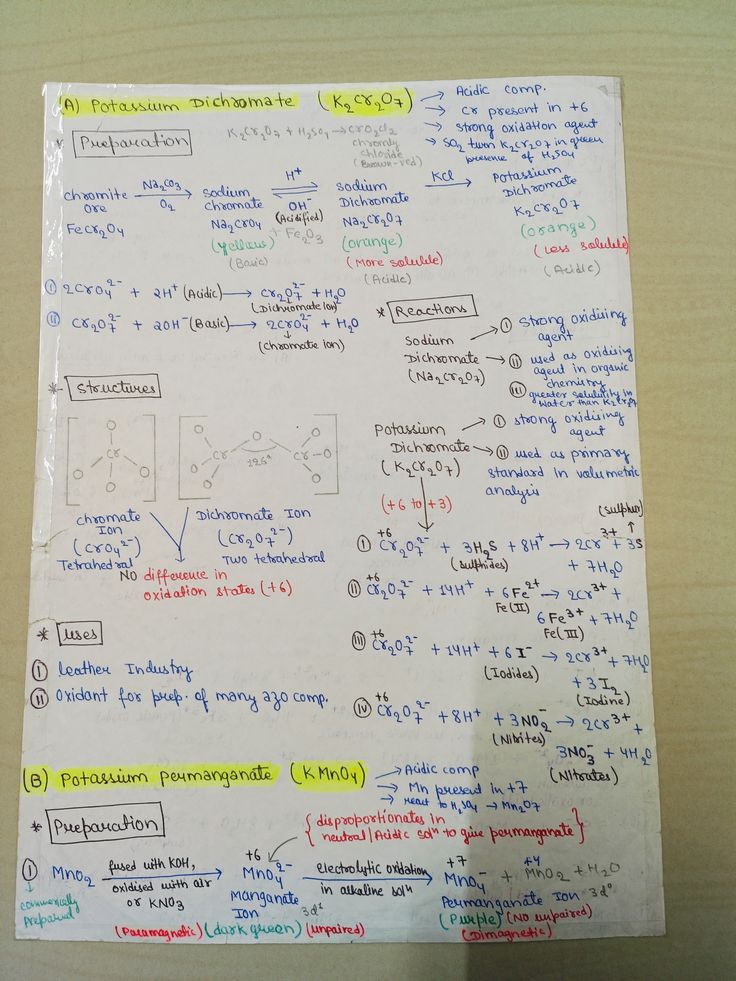 (A) Potassium Dichromate (K2Cr2O7)
→ Acidic comp.
→ Cr present in +6
→ strong oxidation agent
→ SO2 turn K2Cr2O7 in green
presence of H2SO4
Preparation
K2Cr2O7 + H2SO4 → CrO2Cl2
chromly
chloride
(Brown-red)
chromite ore FeCr2O4
Na2CO3
O2
sodium chromate Na2CrO4
(yellow)
(Basic)
+ Fe2O3
H+
⇌
OH-
(Acidified)
sodium Dichromate Na2Cr2O7
(orange)
(More soluble)
(Acidic)
KCl
→
Potassium Dichromate
K2Cr2O7
(orange)
(Less soluble)
(Acidic)
(i) 2CrO4^2- + 2H+ (Acidic) → Cr2O7^2- + H2O
(Dichromate Ion)
(ii) Cr2O7^2- + 2OH- (Basic) → 2CrO4^2- + H2O
(chromate ion)
* Reactions
sodium
Dichromate
(Na2Cr2O7)
(i) strong oxidising
agent
(ii) used as oxidising
agent in organic
chemistry
(iii) greater solubility in
water than K2Cr2O7
Potassium
Dichromate
(K2Cr2O7)
(i) strong oxidising
agent
(ii) used as primary
standard in volumetric
analysis
(+6 to +3)
* Structures
O O Cr O O
O O O Cr O Cr O O O
126°
chromate
Ion
(CrO4^2-)
Tetrahedral
Dichromate Ion
(Cr2O7^2-)
Two tetrahedral
NO difference in
oxidation states (+6)
(sulphur)
(i) +6 Cr2O7^2- + 3H2S + 8H+ → 2Cr^3+ + 3S
(sulphides)
+ 7H2O
(ii) +6 Cr2O7^2- + 14H+ + 6Fe^2+ → 2Cr^3+ +
Fe(II)
6Fe^3+ + 7H2O
Fe(III)
(iii) +6 Cr2O7^2- + 14H+ + 6I- → 2Cr^3+ + 7H2O
(Iodides)
+ 3I2
(Iodine)
(iv) +6 Cr2O7^2- + 8H+ + 3NO2- → 2Cr^3+ +
(Nitrites)
3NO3- + 4H2O
(Nitrates)
* Uses
(i) leather Industry
(ii) Oxidant for prep. of many azo comp.
(B) Potassium permanganate (KMnO4)
→ Acidic comp
→ Mn present in +7
→ react to H2SO4 → Mn2O7
* Preparation
{disproportionates in
neutral/Acidic solⁿ to give permanganate}
(i) MnO2
commercially
prepared
fused with KOH,
oxidised with air
or KNO3
+6
MnO4^2-
Manganate
Ion 3d¹
(Paramagnetic) (dark green) (unpaired)
electrolytic oxidation
in alkaline solⁿ
+7 +4
MnO4- + MnO2 + H2O
Permanganate Ion 3d⁰
(Purple) (No unpaired)
(Dimagnetic)